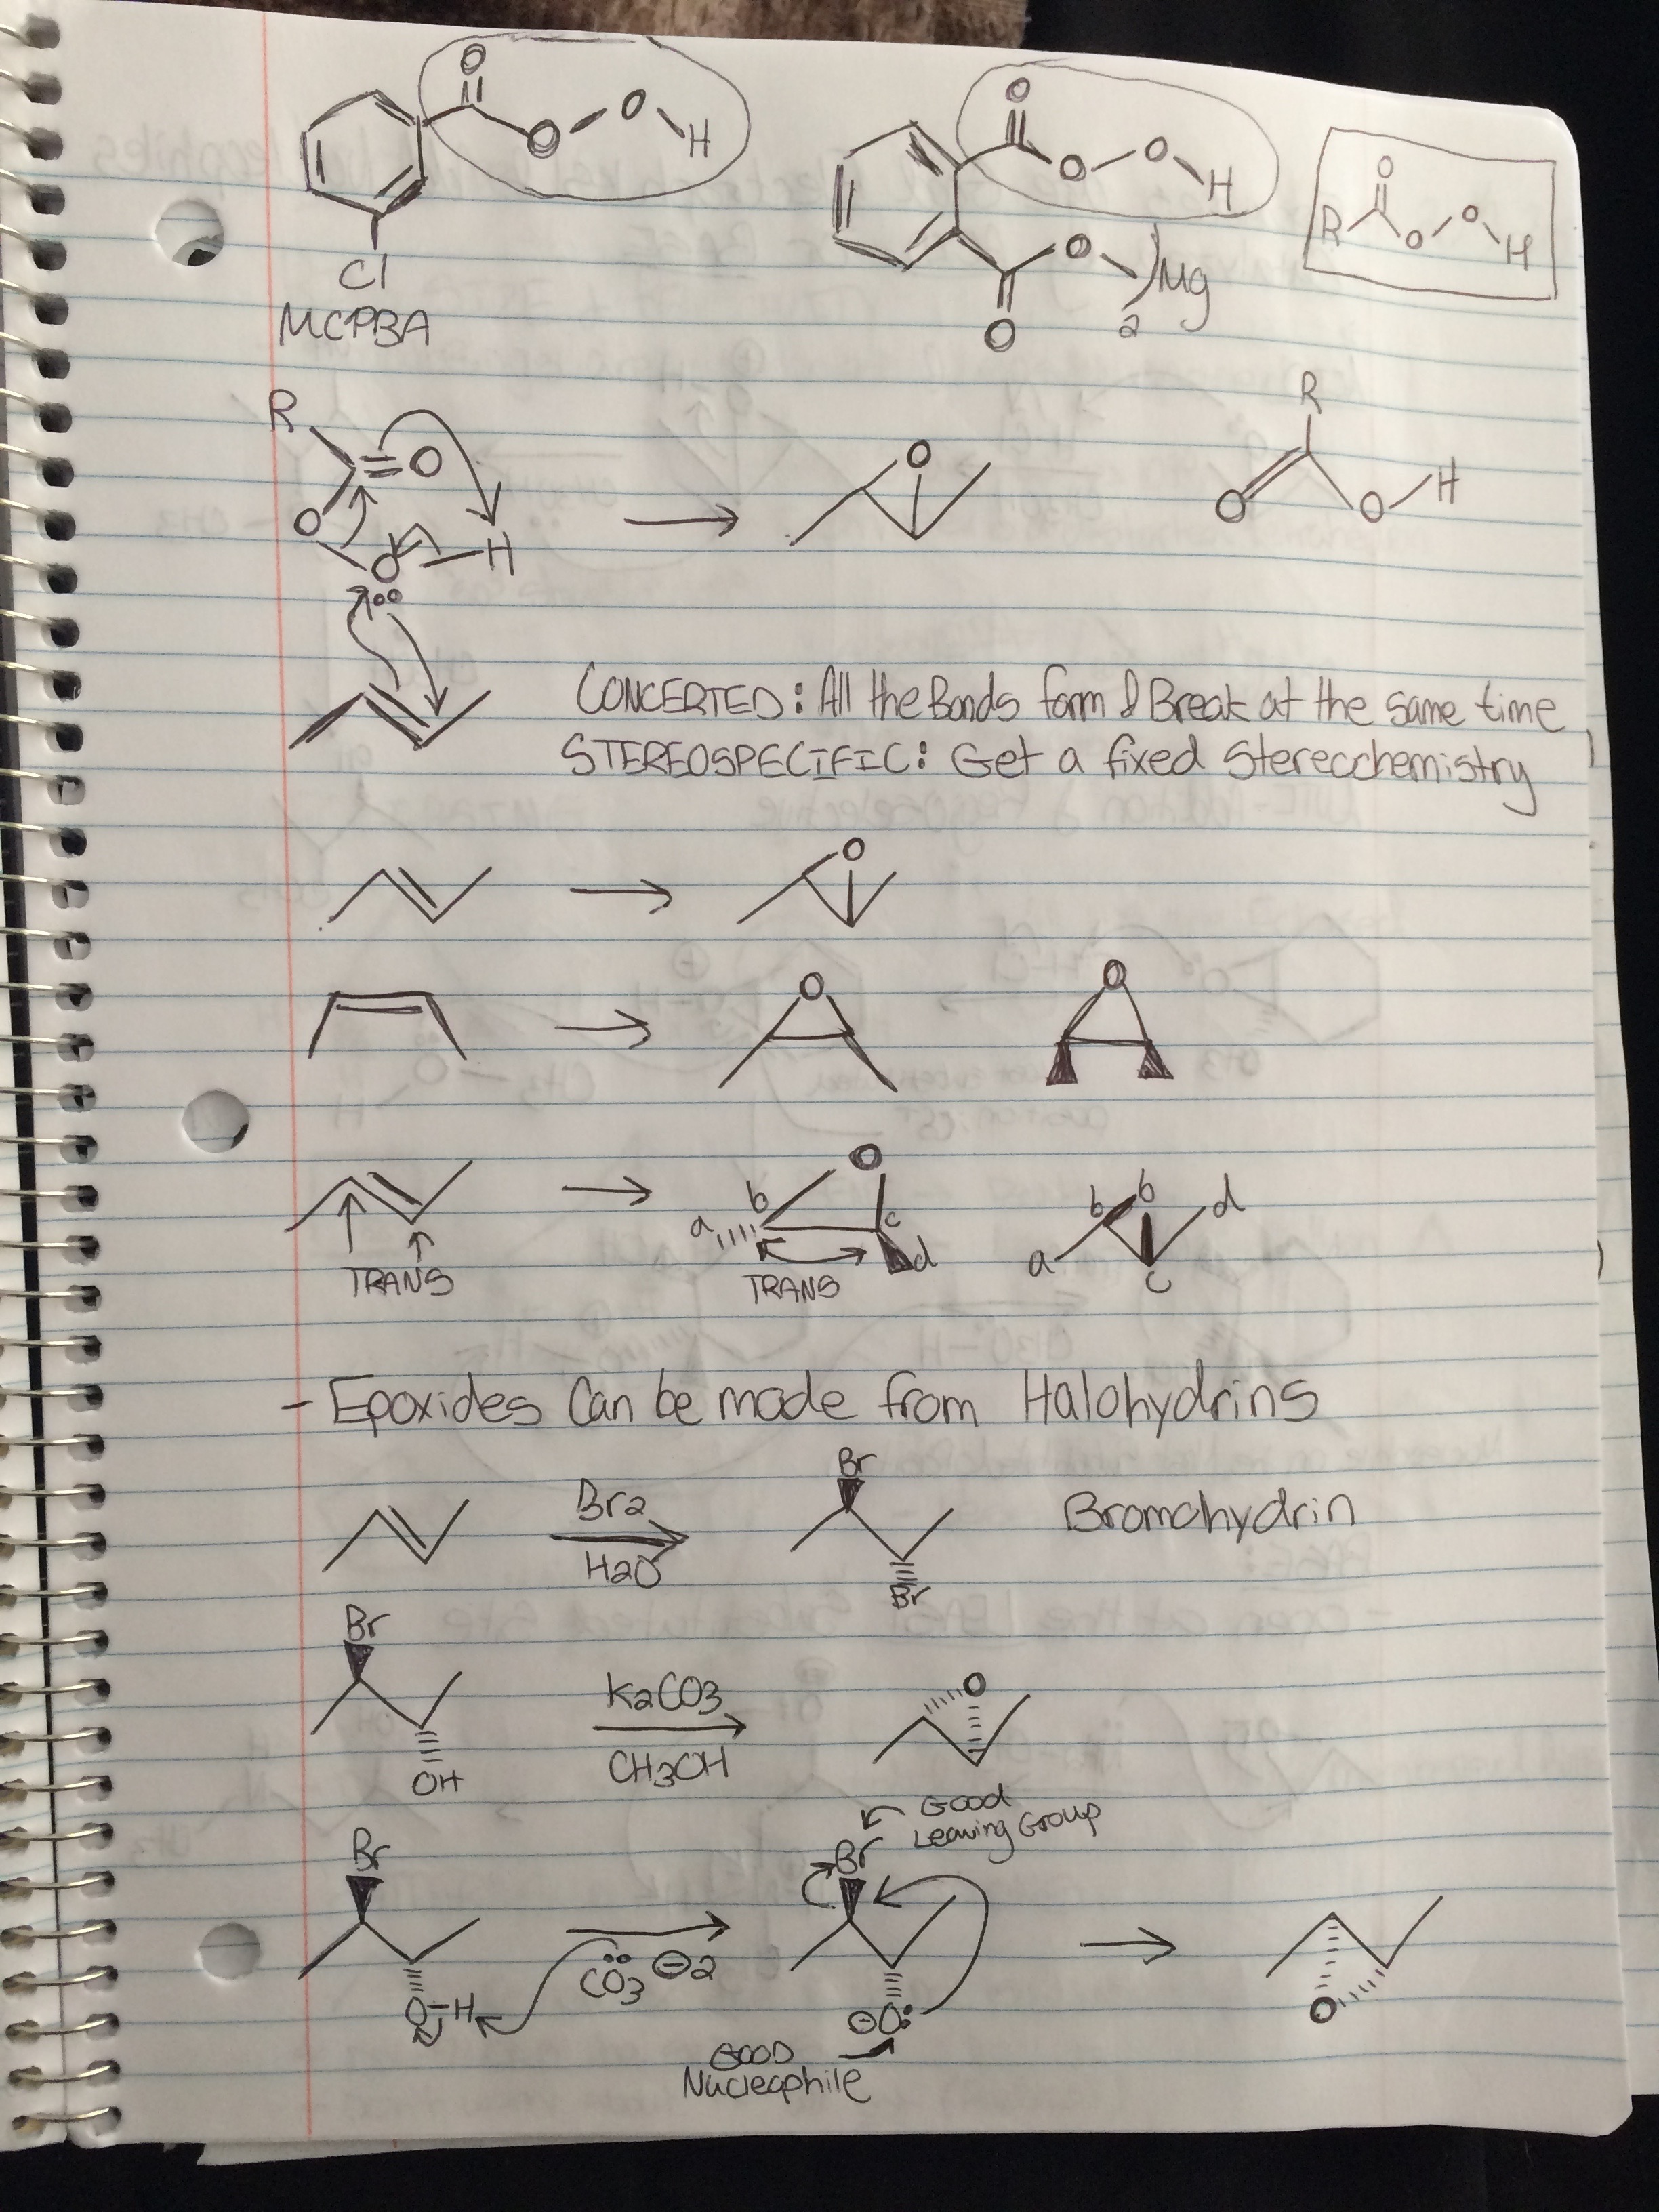 O O
O O H O O H O
R O O H
O )Mg
Cl O 2
MCPBA
R R
O O H
O O O
O H
CONCERTED: All the Bonds form & Break at the same time
STEREOSPECIFIC: Get a fixed Stereochemistry
O
O O
O
a b c d a b b c d
TRANS TRANS
- Epoxides Can be made from Halohydrins
Br
Br2 Bromohydrin
H2O
Br
Br
K2CO3 O
CH3OH
OH
Good
Leaving Group
Br Br
CO3 ⊖2
O-H ⊖O: O
GOOD
Nucleophile